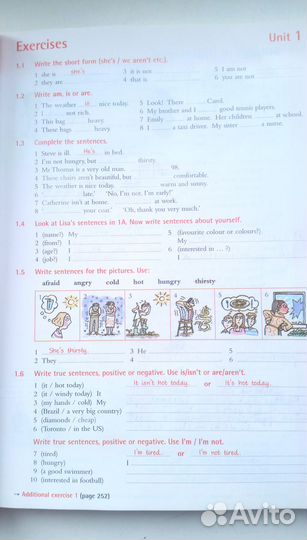 Exercises
Unit 1
1.1 Write the short form (she's / we aren't etc.).
1 she is she's 3 it is not 5 I am not
2 they are 4 that is 6 you are not
1.2 Write am, is or are.
1 The weather is nice today. 5 Look! There Carol.
2 I not rich. 6 My brother and I good tennis players.
3 This bag heavy. 7 Emily at home. Her children at school.
4 These bags heavy. 8 I a taxi driver. My sister a nurse.
1.3 Complete the sentences.
1 Steve is ill. He's in bed.
2 I'm not hungry, but thirsty.
3 Mr Thomas is a very old man. 98.
4 These chairs aren't beautiful, but comfortable.
5 The weather is nice today. warm and sunny.
6 ' late.' 'No, I'm not. I'm early!'
7 Catherine isn't at home. at work.
8 ' your coat.' 'Oh, thank you very much.'
1.4 Look at Lisa's sentences in 1A. Now write sentences about yourself.
1 (name?) My 5 (favourite colour or colours?)
2 (from?) I My
3 (age?) I 6 (interested in ... ?)
4 (job?) I I
1.5 Write sentences for the pictures. Use:
afraid angry cold hot hungry thirsty
1 2 3 4 5 6
1 She's thirsty. 3 He 5
2 They 4 6
1.6 Write true sentences, positive or negative. Use is/isn't or are/aren't.
1 (it / hot today) It isn't hot today. or It's hot today.
2 (it / windy today) It
3 (my hands / cold) My
4 (Brazil / a very big country)
5 (diamonds / cheap)
6 (Toronto / in the US)
Write true sentences, positive or negative. Use I'm / I'm not.
7 (tired) I'm tired. or I'm not tired.
8 (hungry) I
9 (a good swimmer)
10 (interested in football)
→ Additional exercise 1 (page 252)
Avito